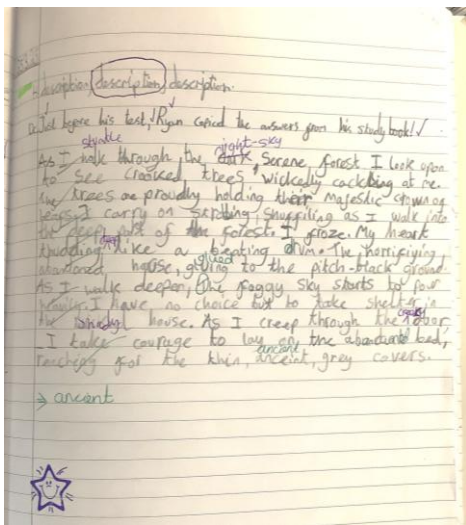 description, description, description.
Just before his test, Ryan copied the answers from his study book!
night-sky
As I walk through the dark serene forest I look upon
to see crooked trees, wickedly cackling at me.
the trees are proudly holding their majestic crown of
I carry on shuffiling as I walk into
the deep part of the forest. I froze. My heart
thudding like a beating drum. The horrifiying,
glued
house, to the pitch-black ground.
As I walk deeper, the foggy sky starts to pour
I have no choice but to take shelter in
creaky
the house. As I creep through the
I take courage to lay on the bed,
ancient
reaching for the thin, anceint, grey covers.
→ ancient